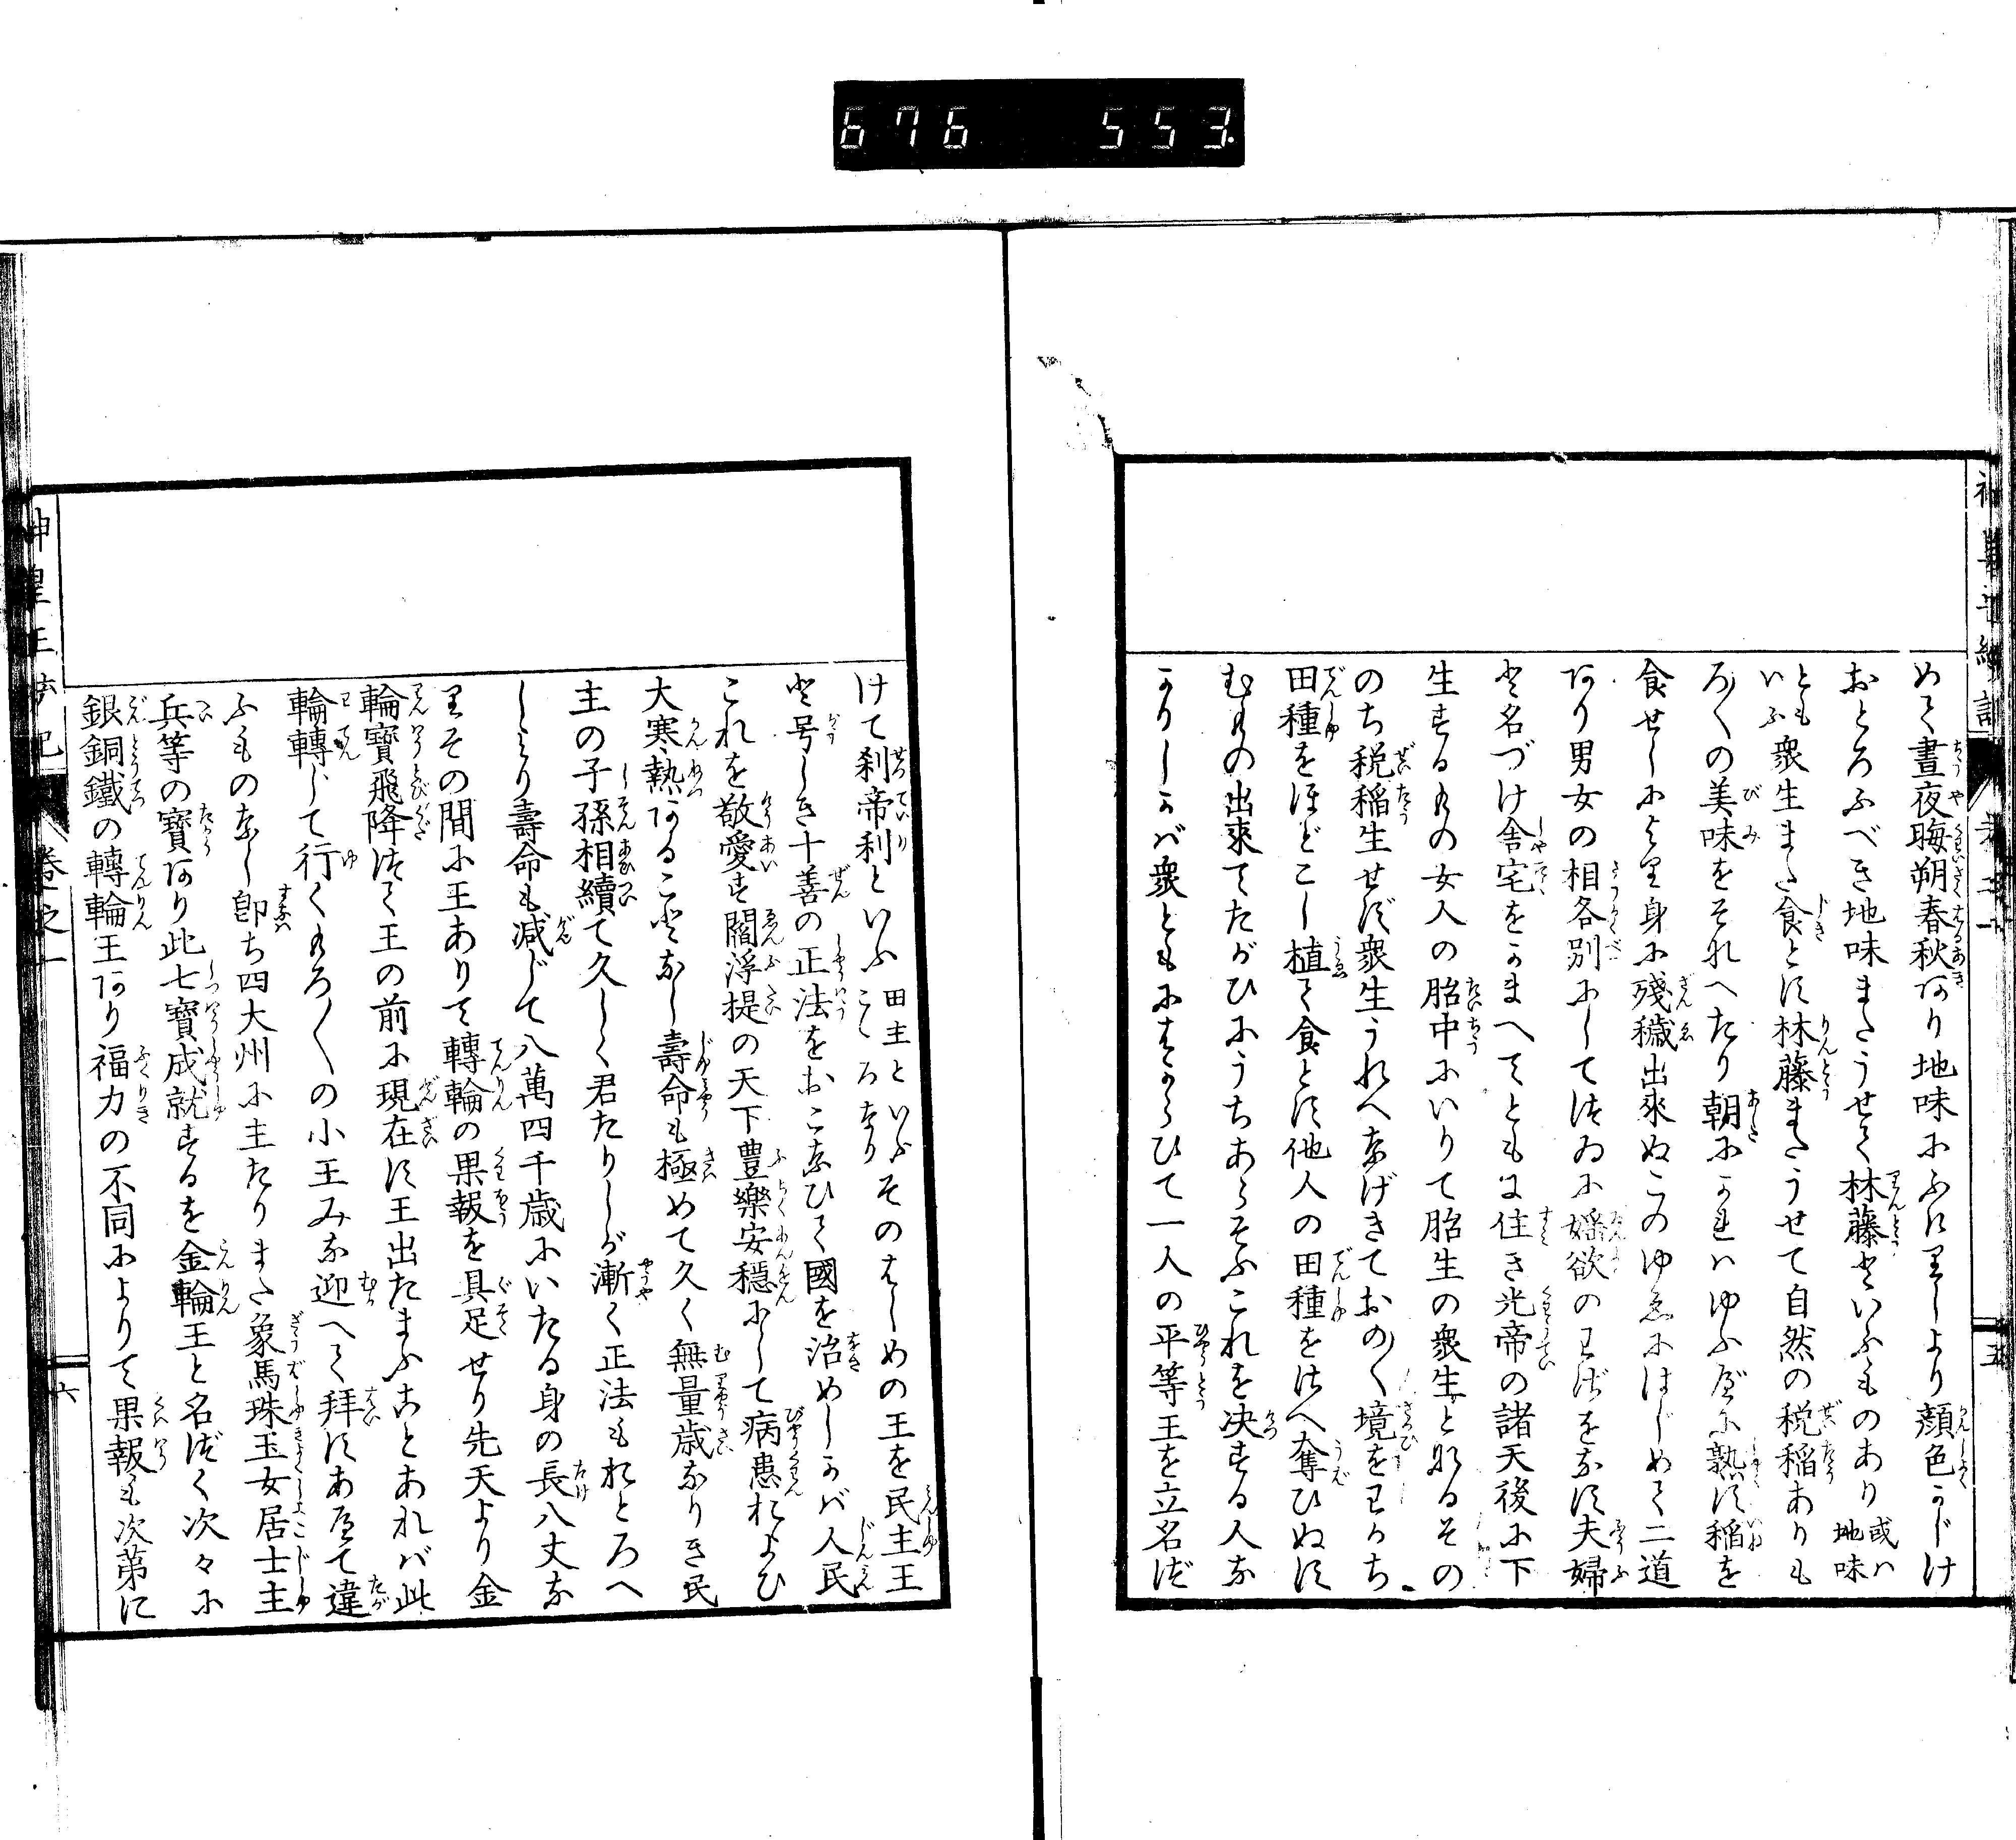 676 553.
めて晝夜晦朔春秋あり地味にふけりしより顔色かじけ
おとろふべき地味またうせて林藤といふものあり或ハ地味
ともいふ衆生また食とす林藤またうせて自然の税稲ありも
ろ〳〵の美味をそれへたり朝にかれハゆふべに熟す稲を
食せしによりて身に残穢出来ぬこのゆゑにはじめて二道
あり男女の相各別にして つゐに婬欲のわざをなす夫婦
と名づけ舎宅をかまへてともに住き光帝の諸天後に下
生するもの女人の胎中にいりて胎生の衆生となるその
のち税稲生せず衆生うれへなげきておの〳〵境をわかち
田種をほどこし植て食とす他人の田種をさへ奪ひぬす
むもの出來てたがひにうちあらそふこれを决する人な
かりしかバ衆ともにはからひて一人の平等王を立名づ
けて刹帝利といふ田主といふこゝろなりそのはじめの王を民主王
と号しき十善の正法をおこなひて國を治めしかバ人民
これを敬愛す閻浮提の天下豊樂安穏にして病患および
大寒熱あること なし壽命も極めて久く無量歳なりき民
主の子孫相續て久しく君たりしが漸く正法もおとろへ
しより壽命も减じて八萬四千歳にいたる身の長八丈な
りその間に王ありて轉輪の果報を具足せり先天より金
輪寶飛降つて王の前に現在す王出たまふことあれバ此
輪轉じて行くもろ〳〵の小王みな迎へて拜すあへて違
ふものなし即ち四大州に主たりまた象馬珠玉女居士主
兵等の寳あり此七寳成就するを金輪王と名づく次々に
銀銅鐵の轉輪王あり福力の不同によりて果報も次第に
卷之一
六
五